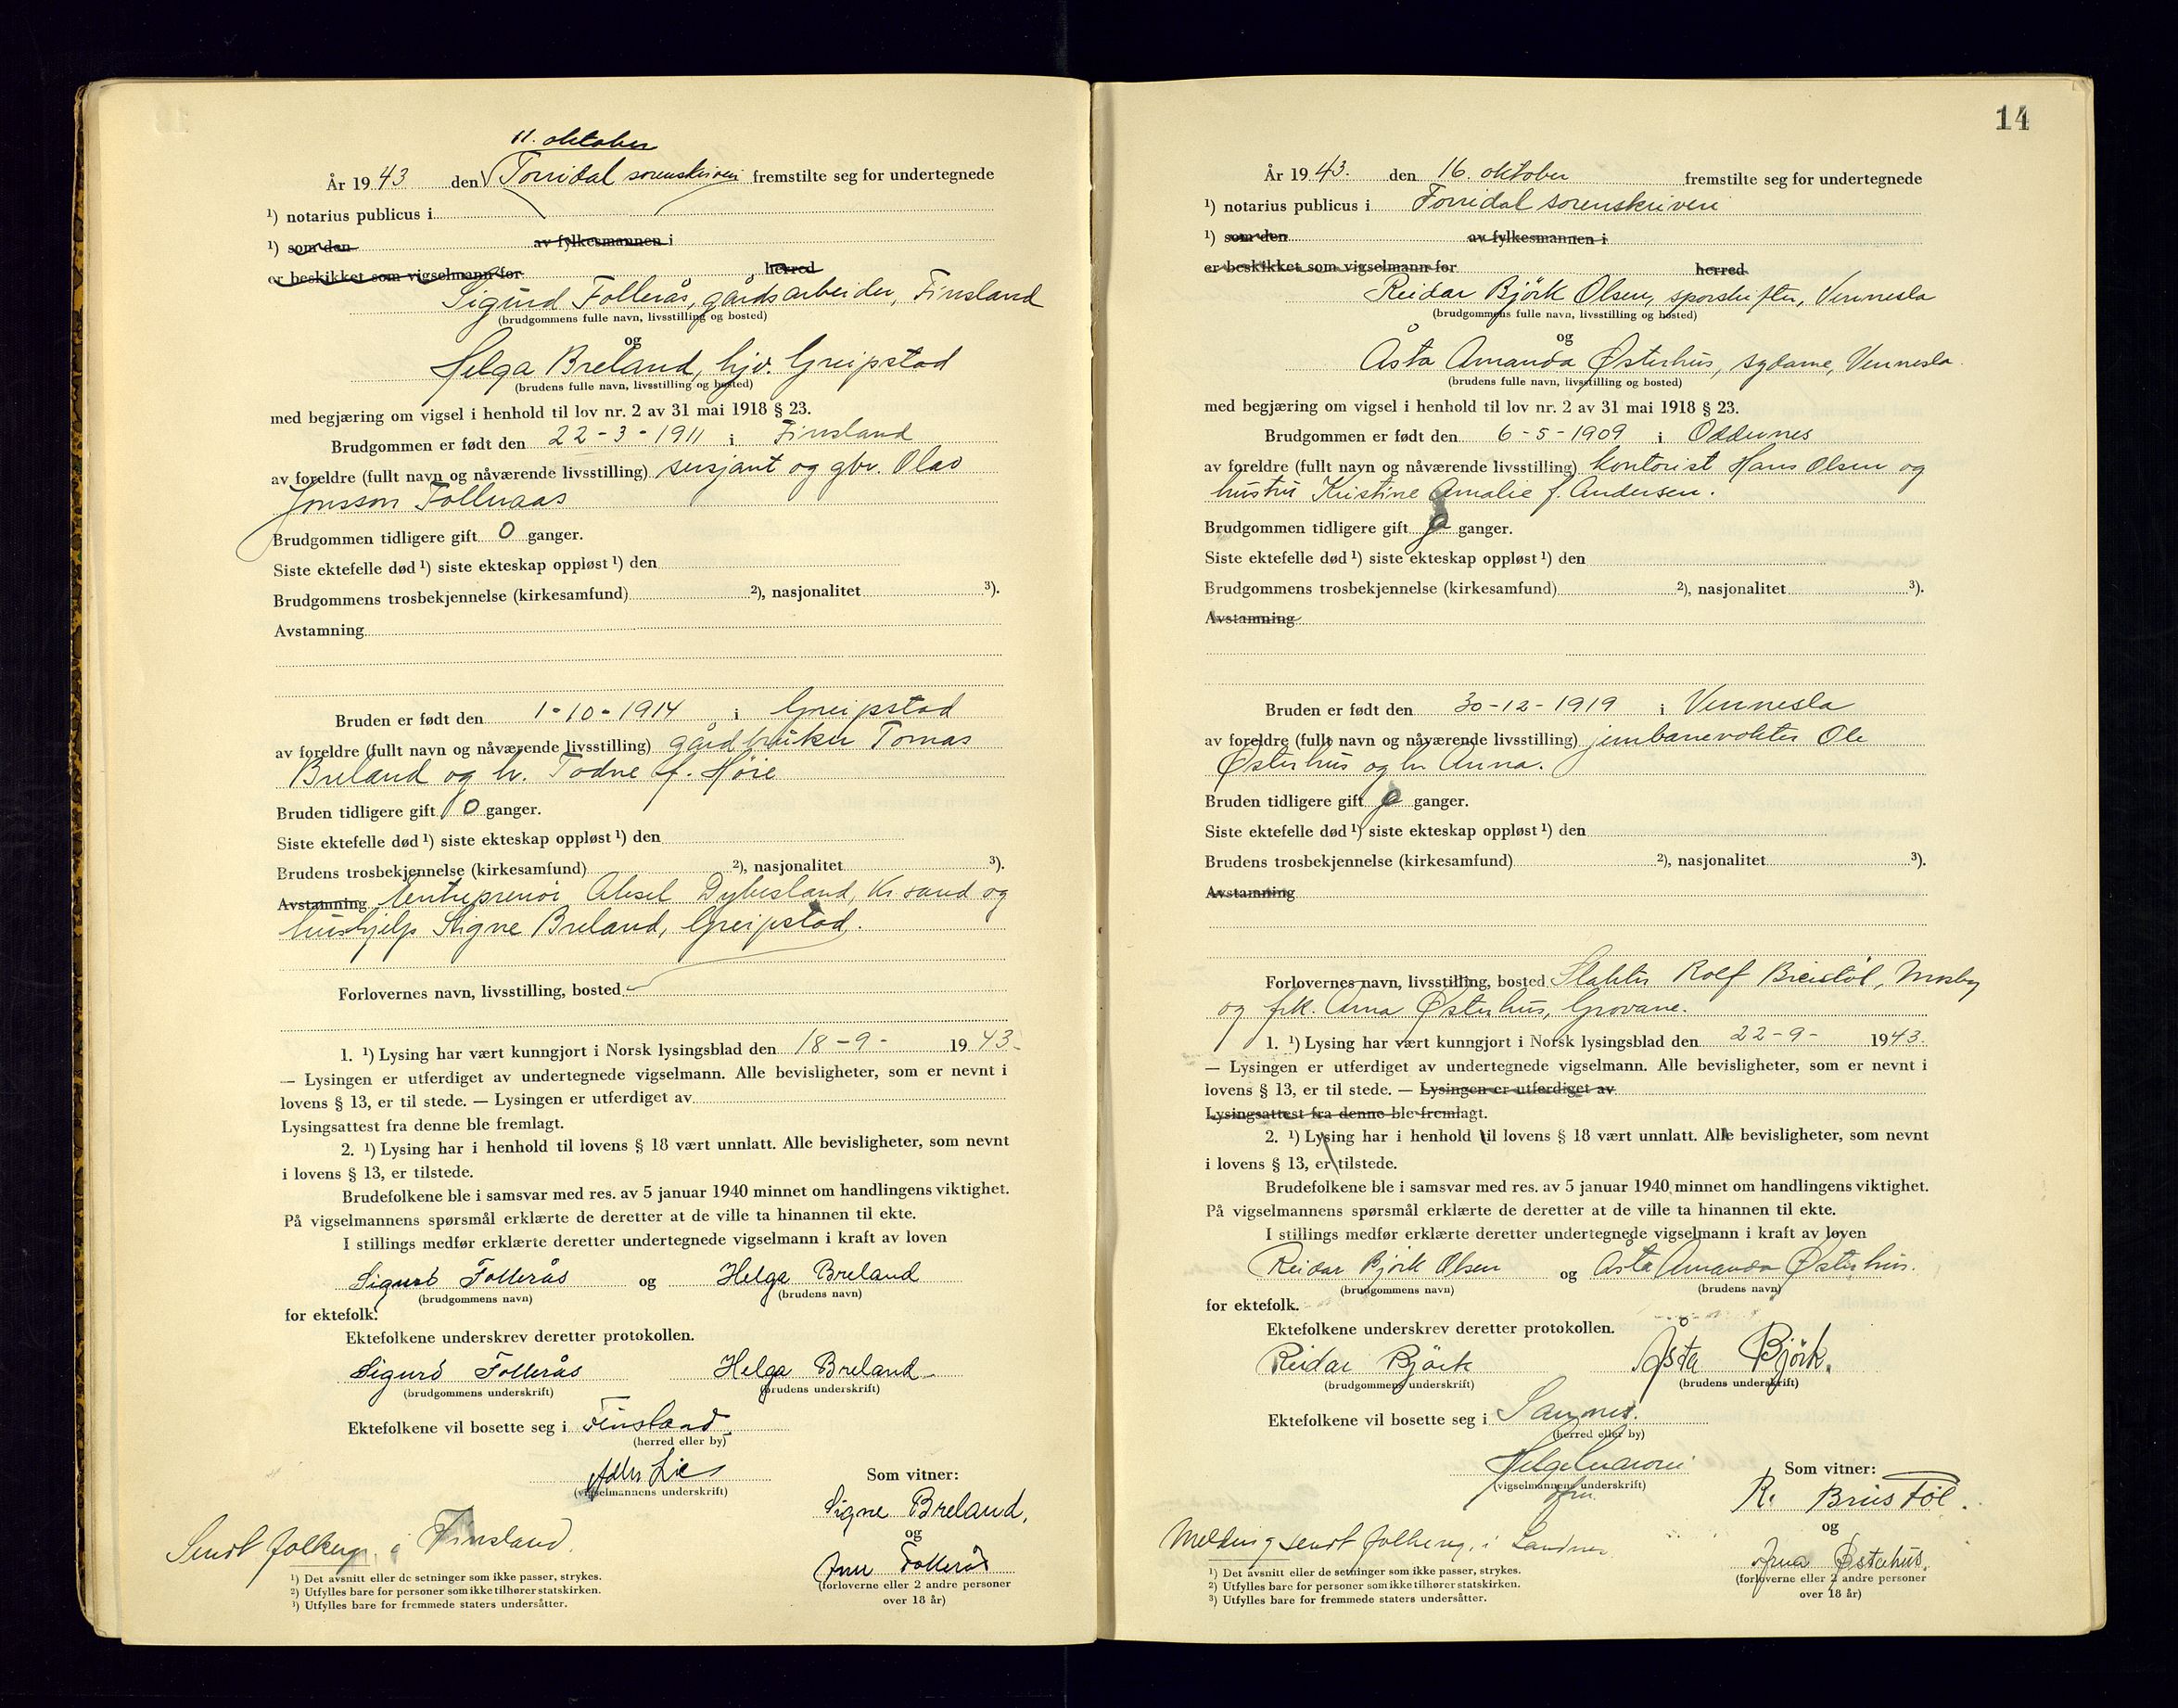 11. oktober
År 1943 den Torridal sorenskriveri fremstilte seg for undertegnede
¹) notarius publicus i
¹) som den av fylkesmannen i
er beskikket som vigselmann for herred
Sigurd Follerås, gårdsarbeider, Finsland
(brudgommens fulle navn, livsstilling og bosted)
og
Helga Breland, hjv. Greipstad
(brudens fulle navn, livsstilling og bosted)
med begjæring om vigsel i henhold til lov nr. 2 av 31 mai 1918 § 23.
Brudgommen er født den 22-3-1911 i Finsland
av foreldre (fullt navn og nåværende livsstilling) sersjant og gbr. Olav
Jonsson Folleraas
Brudgommen tidligere gift 0 ganger.
Siste ektefelle død ¹) siste ekteskap oppløst ¹) den
Brudgommens trosbekjennelse (kirkesamfund) ²), nasjonalitet ³).
Avstamning
Bruden er født den 1-10-1914 i Greipstad
av foreldre (fullt navn og nåværende livsstilling) gårdbruker Tomas
Breland og h. Todne f. Høie
Bruden tidligere gift 0 ganger.
Siste ektefelle død ¹) siste ekteskap oppløst ¹) den
Brudens trosbekjennelse (kirkesamfund) ²), nasjonalitet ³).
Avstamning Entreprenør Aksel Dybesland, Kr.sand og
hushjelp Signe Breland, Greipstad.
Forlovernes navn, livsstilling, bosted
1. ¹) Lysing har vært kunngjort i Norsk lysingsblad den 18-9- 1943.
— Lysingen er utferdiget av undertegnede vigselmann. Alle bevisligheter, som er nevnt i
lovens § 13, er til stede. — Lysingen er utferdiget av
Lysingsattest fra denne ble fremlagt.
2. ¹) Lysing har i henhold til lovens § 18 vært unnlatt. Alle bevisligheter, som nevnt
i lovens § 13, er tilstede.
Brudefolkene ble i samsvar med res. av 5 januar 1940 minnet om handlingens viktighet.
På vigselmannens spørsmål erklærte de deretter at de ville ta hinannen til ekte.
I stillings medfør erklærte deretter undertegnede vigselmann i kraft av loven
Sigurd Follerås og Helga Breland
(brudgommens navn) (brudens navn)
for ektefolk.
Ektefolkene underskrev deretter protokollen.
Sigurd Follerås Helga Breland
(brudgommens underskrift) (brudens underskrift)
Ektefolkene vil bosette seg i Finsland
(herred eller by)
Lie
(vigselmannens underskrift)
Som vitner:
Signe Breland.
og
Follerås
(forloverne eller 2 andre personer
over 18 år)
Sendt folkereg. i Finsland.
¹) Det avsnitt eller de setninger som ikke passer, strykes.
²) Utfylles bare for personer som ikke tilhører statskirken.
³) Utfylles bare for fremmede staters undersåtter.
14
År 1943. den 16. oktober fremstilte seg for undertegnede
¹) notarius publicus i Torridal sorenskriveri
¹) som den av fylkesmannen i
er beskikket som vigselmann for herred
Reidar Björk Olsen, sporskifter, Vennesla
(brudgommens fulle navn, livsstilling og bosted)
og
Åsta Amanda Østerhus, sydame, Vennesla.
(brudens fulle navn, livsstilling og bosted)
med begjæring om vigsel i henhold til lov nr. 2 av 31 mai 1918 § 23.
Brudgommen er født den 6-5-1909 i Oddernes
av foreldre (fullt navn og nåværende livsstilling) kontorist Hans Olsen og
hustru Kristine Amalie f. Andersen.
Brudgommen tidligere gift 0 ganger.
Siste ektefelle død ¹) siste ekteskap oppløst ¹) den
Brudgommens trosbekjennelse (kirkesamfund) ²), nasjonalitet ³).
Avstamning
Bruden er født den 30-12-1919 i Vennesla
av foreldre (fullt navn og nåværende livsstilling) jernbanevokter Ole
Østerhus og h. Anna.
Bruden tidligere gift 0 ganger.
Siste ektefelle død ¹) siste ekteskap oppløst ¹) den
Brudens trosbekjennelse (kirkesamfund) ²), nasjonalitet ³).
Avstamning
Forlovernes navn, livsstilling, bosted Slakter Rolf Breistöl, Mosby
og frk. Arna Østerhus, Grovane.
1. ¹) Lysing har vært kunngjort i Norsk lysingsblad den 22-9- 1943.
— Lysingen er utferdiget av undertegnede vigselmann. Alle bevisligheter, som er nevnt i
lovens § 13, er til stede. — Lysingen er utferdiget av
Lysingsattest fra denne ble fremlagt.
2. ¹) Lysing har i henhold til lovens § 18 vært unnlatt. Alle bevisligheter, som nevnt
i lovens § 13, er tilstede.
Brudefolkene ble i samsvar med res. av 5 januar 1940 minnet om handlingens viktighet.
På vigselmannens spørsmål erklærte de deretter at de ville ta hinannen til ekte.
I stillings medfør erklærte deretter undertegnede vigselmann i kraft av loven
Reidar Björk Olsen og Åsta Amanda Østerhus.
(brudgommens navn) (brudens navn)
for ektefolk.
Ektefolkene underskrev deretter protokollen.
Reidar Björk Åsta Björk.
(brudgommens underskrift) (brudens underskrift)
Ektefolkene vil bosette seg i
(herred eller by)
(vigselmannens underskrift)
Som vitner:
R. Breistöl.
og
Arna Østerhus.
(forloverne eller 2 andre personer
over 18 år)
Melding sendt folkereg. i
¹) Det avsnitt eller de setninger som ikke passer, strykes.
²) Utfylles bare for personer som ikke tilhører statskirken.
³) Utfylles bare for fremmede staters undersåtter.